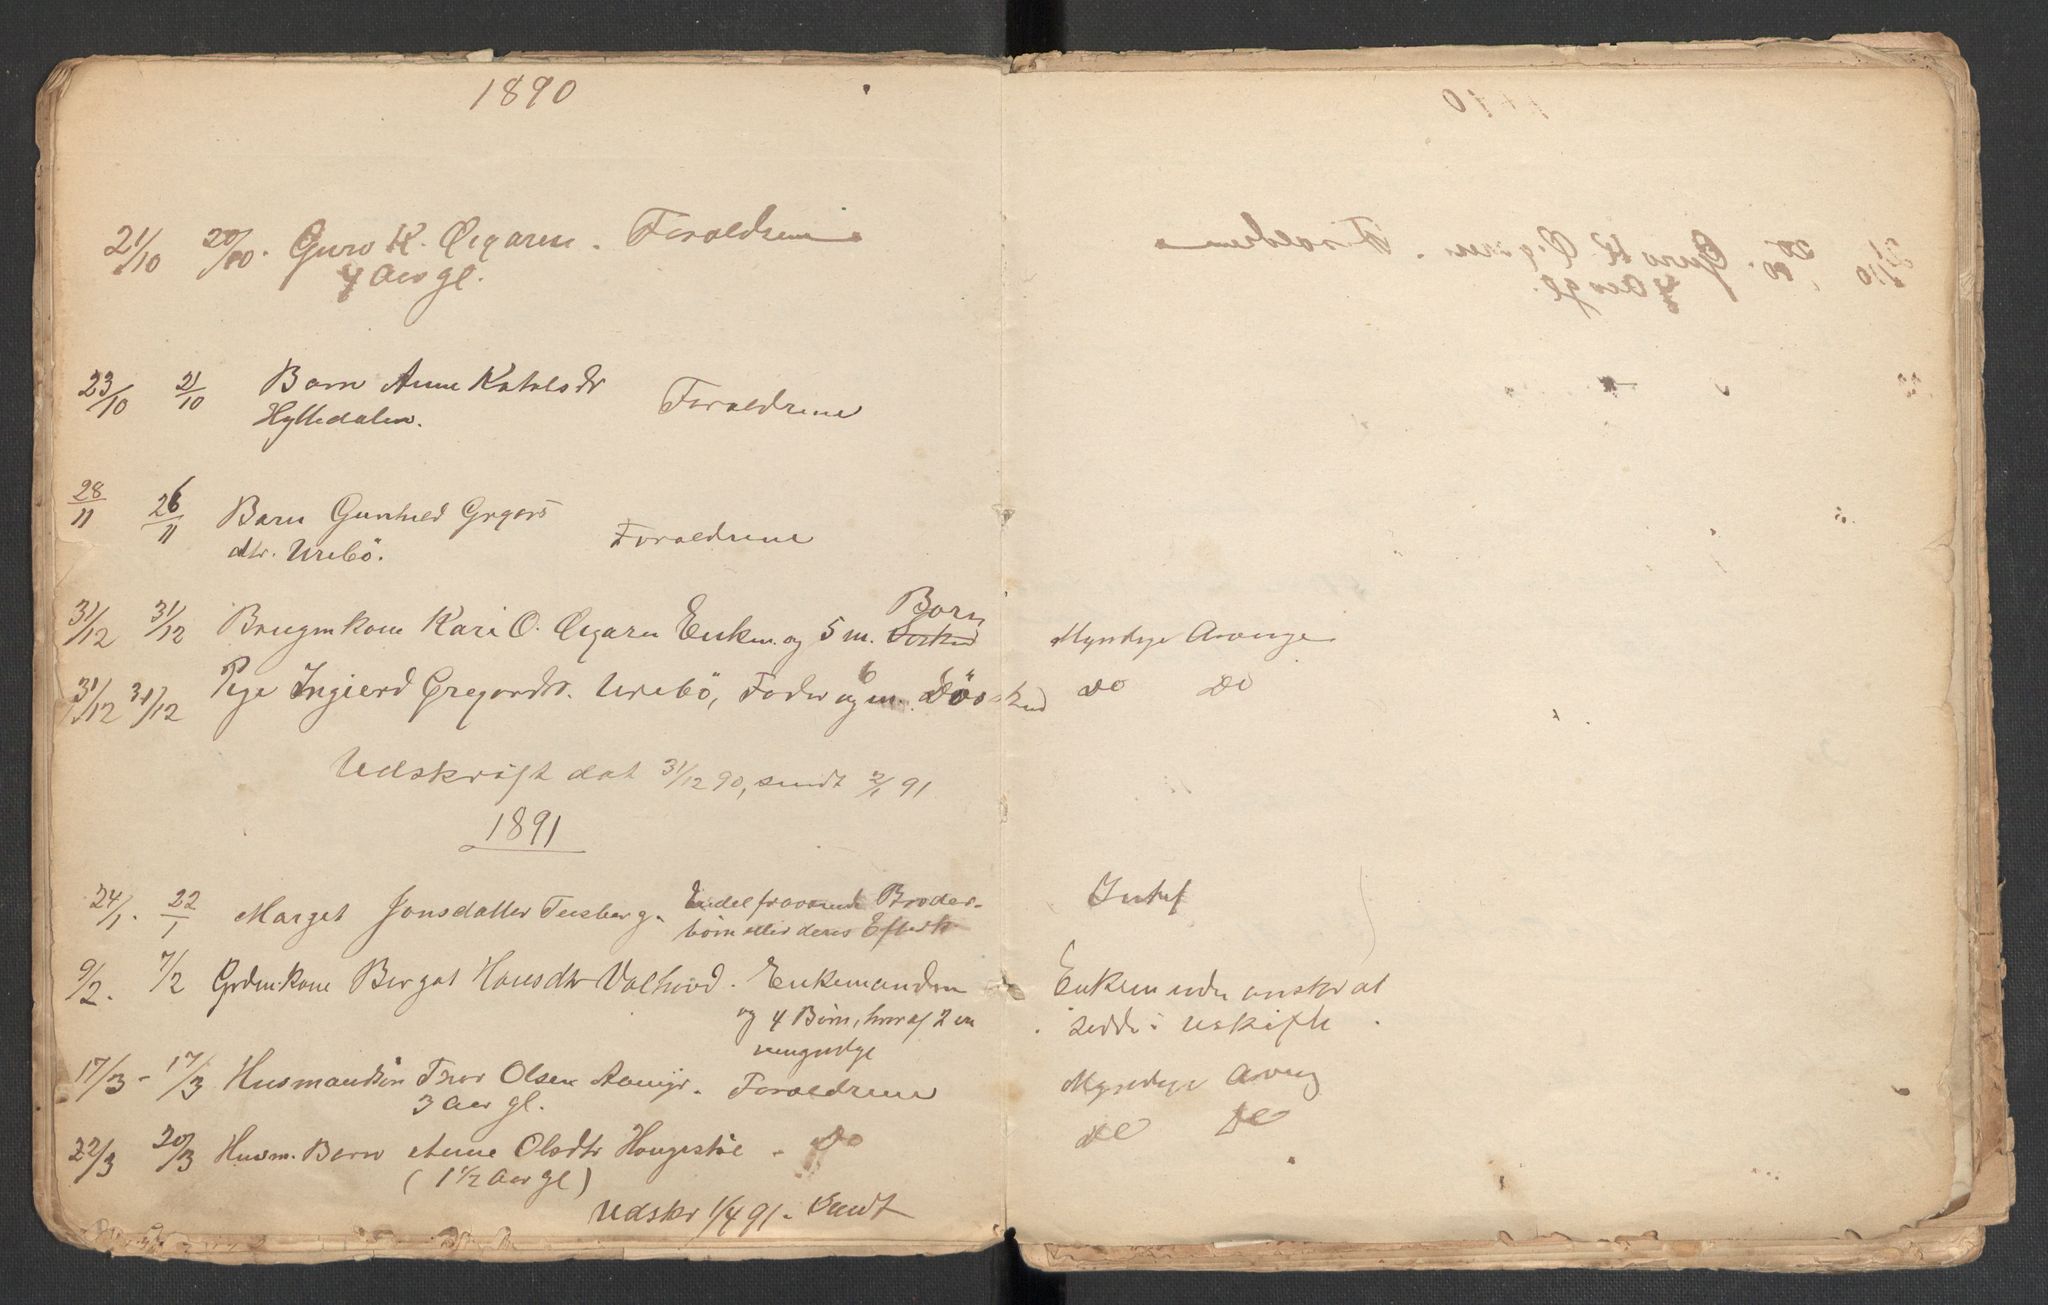 1890
21/10 20/10. Guro K. Øigaren. Forældrene
4 Aar gl.
23/10 21/10 Barn Anne Ketilsdr Forældrene
Hylledalen.
28/11 26/11 Barn Gunhild Grgars
dtr. Urebö. Forældrene
Børn
31/12 31/12 Brugmkone Kari O. Øigaren Enkem. og 5 m. Myndige Arvinge
31/12 31/12 Pige Ingierd Gregardtr. Urebö, Fader og 6 m. Søsken do do
Udskrift dat 31/12 90, sendt 2/1 91
1891
24/1. 22/1 Marget Jonsdatter Teisberg. Endel fraværende Broder- Intet
börn eller deres Efterk
9/2. 7/2 Grdm.kone Bergat Hansdtr Valhovd. Enkemanden Enkem
og 4 Börn, hvoraf 2 ere sidde i Uskifte.
umyndige
17/3 - 17/3 Husmandsön Thor Olsen. Forældrene Myndige Arving
3 Aar gl.
22/3 20/3 Husm. Barn Anne Olsdtr Haugestöl - Do do do
(1 1/2 Aar gl)
Udskr 1/4 91. Sendt